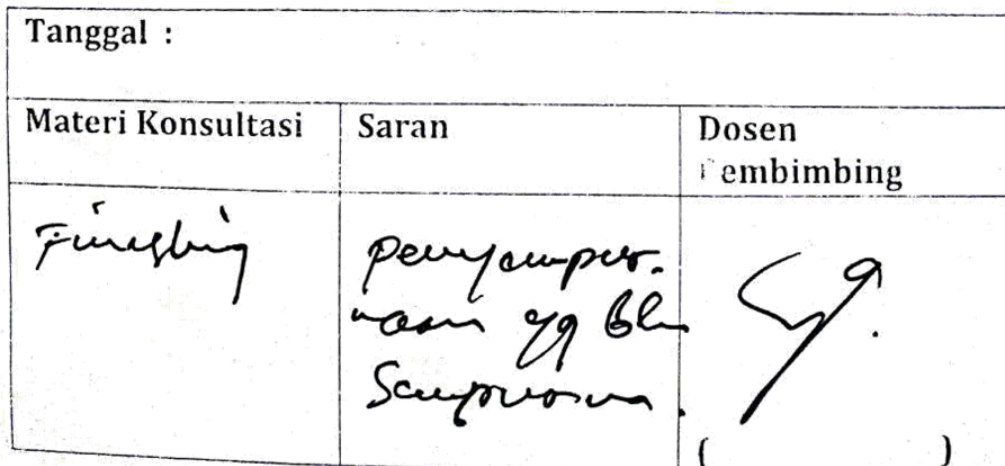 Tanggal :
Materi Konsultasi
Saran
Dosen
Pembimbing
Finishing
penyempur-
naan yg blm
Sempurna.
( )